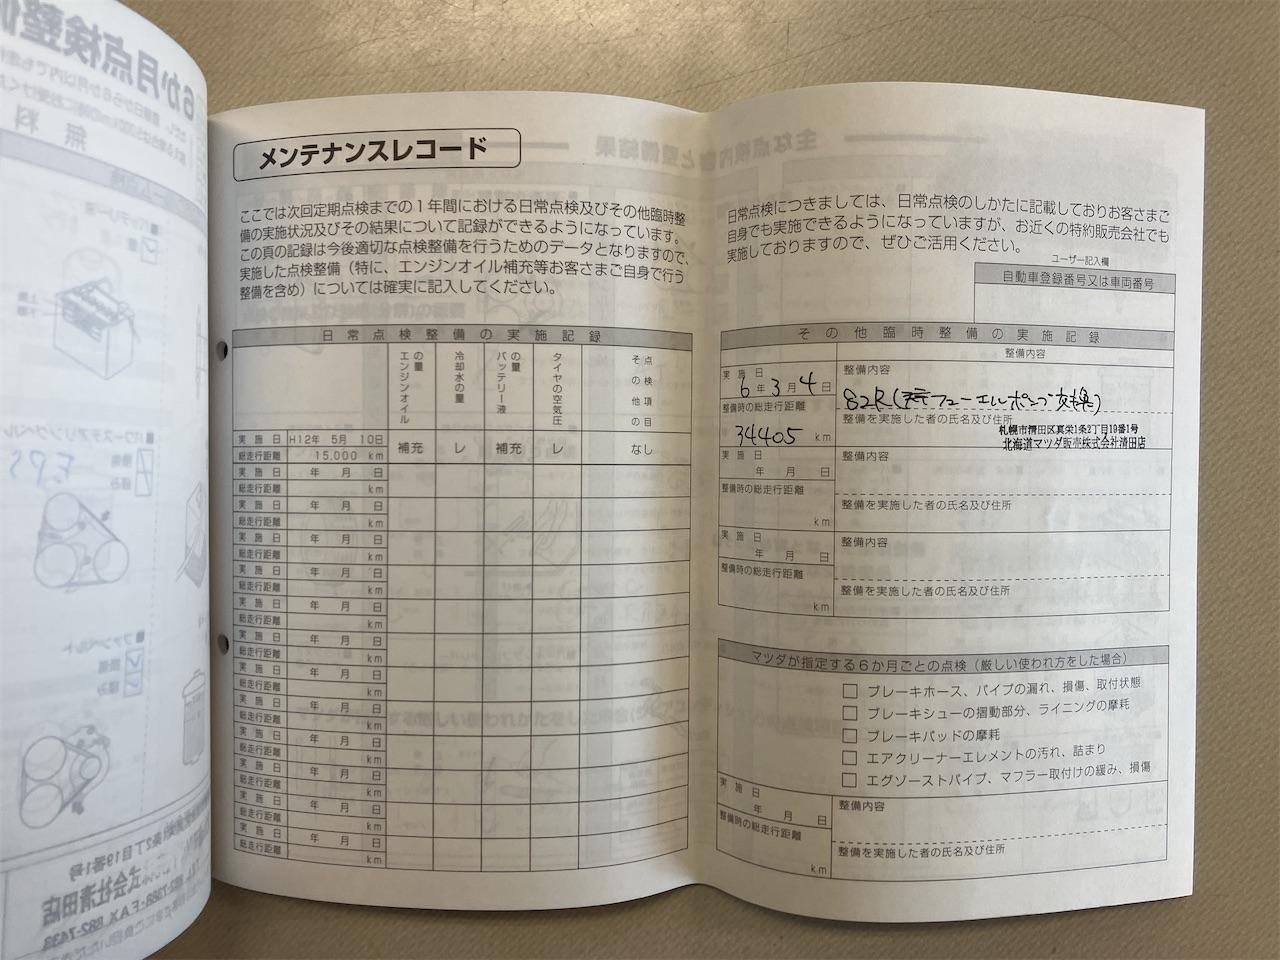 メンテナンスレコード
ここでは次回定期点検までの1年間における日常点検及びその他臨時整
備の実施状況及びその結果について記録ができるようになっています。
この頁の記録は今後適切な点検整備を行うためのデータとなりますので、
実施した点検整備（特に、エンジンオイル補充等お客さまご自身で行う
整備を含め）については確実に記入してください。
日常点検整備の実施記録
エンジンオイルの量
冷却水の量
バッテリー液の量
タイヤの空気圧
その他の点検項目
実施日 H12年 5月 10日 補充 レ 補充 レ なし
総走行距離 15,000 km
実施日 年 月 日
総走行距離 km
実施日 年 月 日
総走行距離 km
実施日 年 月 日
総走行距離 km
実施日 年 月 日
総走行距離 km
実施日 年 月 日
総走行距離 km
実施日 年 月 日
総走行距離 km
実施日 年 月 日
総走行距離 km
実施日 年 月 日
総走行距離 km
実施日 年 月 日
総走行距離 km
実施日 年 月 日
総走行距離 km
実施日 年 月 日
総走行距離 km
実施日 年 月 日
総走行距離 km
日常点検につきましては、日常点検のしかたに記載しておりお客さまご
自身でも実施できるようになっていますが、お近くの特約販売会社でも
実施しておりますので、ぜひご活用ください。
ユーザー記入欄
自動車登録番号又は車両番号
その他臨時整備の実施記録
整備内容
実施日
6年3月4日
整備内容
整備時の総走行距離
34405 km
フューエルポンプ交換)
整備を実施した者の氏名及び住所
札幌市清田区真栄1条2丁目19番1号
北海道マツダ販売株式会社清田店
実施日
年 月 日
整備内容
整備時の総走行距離
km
整備を実施した者の氏名及び住所
実施日
年 月 日
整備内容
整備時の総走行距離
km
整備を実施した者の氏名及び住所
マツダが指定する6か月ごとの点検（厳しい使われ方をした場合）
ブレーキホース、パイプの漏れ、損傷、取付状態
ブレーキシューの摺動部分、ライニングの摩耗
ブレーキパッドの摩耗
エアクリーナーエレメントの汚れ、詰まり
エグゾーストパイプ、マフラー取付けの緩み、損傷
実施日
年 月 日
整備内容
整備時の総走行距離
km
整備を実施した者の氏名及び住所